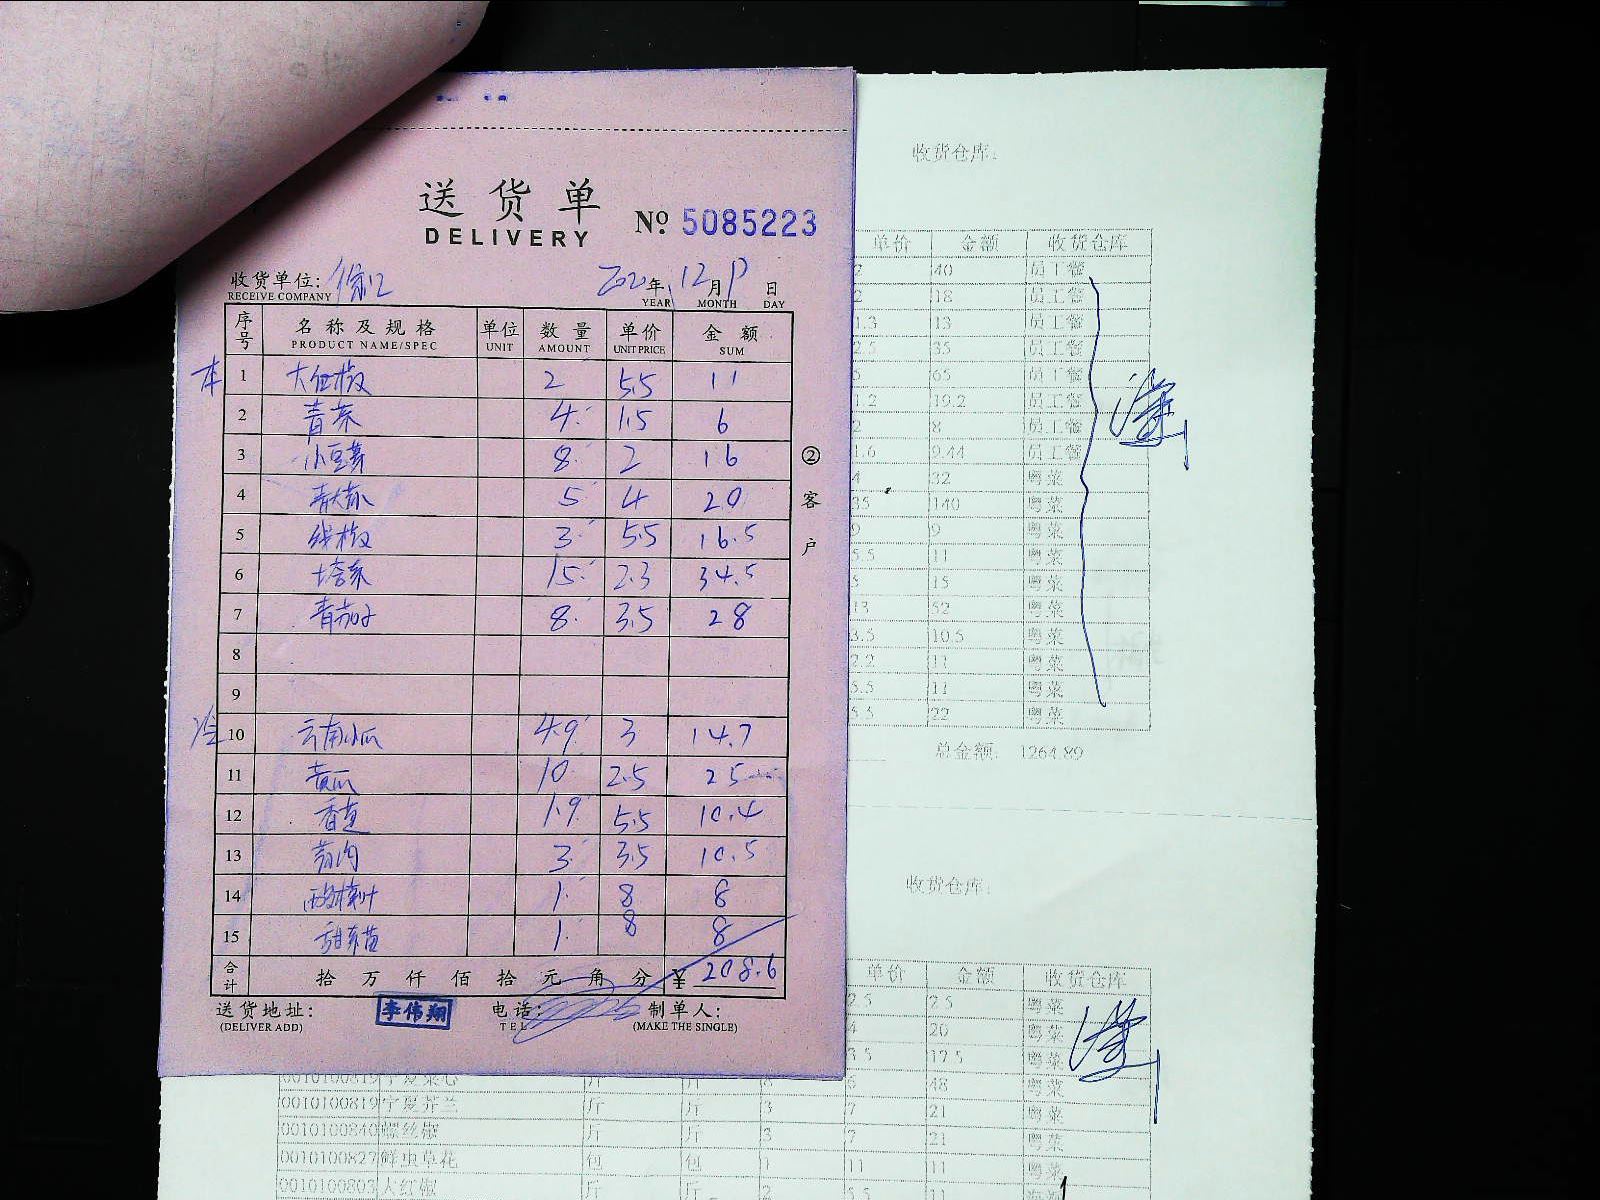 送货单
DELIVERY
№ 5085223
收货单位:
RECEIVE COMPANY
2020年 12月 9日
YEAR MONTH DAY
序号 名称及规格 单位 数量 单价 金额
PRODUCT NAME/SPEC UNIT AMOUNT UNIT PRICE SUM
本 1 大红椒 2 5.5 11
2 青菜 4 1.5 6
3 小豆芽 8 2 16
4 5 4 20
5 线椒 3 5.5 16.5
6 15 2.3 34.5
7 青茄子 8 3.5 28
8
9
冷 10 云南小瓜 4.9 3 14.7
11 黄瓜 10 2.5 25
12 1.9 5.5 10.4
13 3 3.5 10.5
14 1 8 8
15 1 8 8
合计 拾 万 仟 佰 拾 元 角 分 ¥ 208.6
送货地址: 李伟翔 电话: 制单人:
(DELIVER ADD) TEL (MAKE THE SINGLE)
②客户
收货仓库:
单价 金额 收货仓库
2 40 员工餐
2 18 员工餐
1.3 13 员工餐
2.5 35 员工餐
5 65 员工餐
1.2 19.2 员工餐
2 8 员工餐
1.6 9.44 员工餐
4 32 粤菜
35 140 粤菜
9 9 粤菜
5.5 11 粤菜
5 15 粤菜
13 52 粤菜
3.5 10.5 粤菜
2.2 11 粤菜
5.5 11 粤菜
5.5 22 粤菜
总金额: 1264.89
收货仓库:
单价 金额 收货仓库
2.5 25 粤菜
4 20 粤菜
3.5 17.5 粤菜
0010100819 宁夏菜心 斤 斤 8 6 48 粤菜
0010100819 宁夏芥兰 斤 斤 3 7 21 粤菜
0010100840 螺丝椒 斤 斤 3 7 21 粤菜
0010100827 鲜虫草花 包 包 1 11 11 粤菜
0010100803 大红椒 斤 斤 2 5.5 11